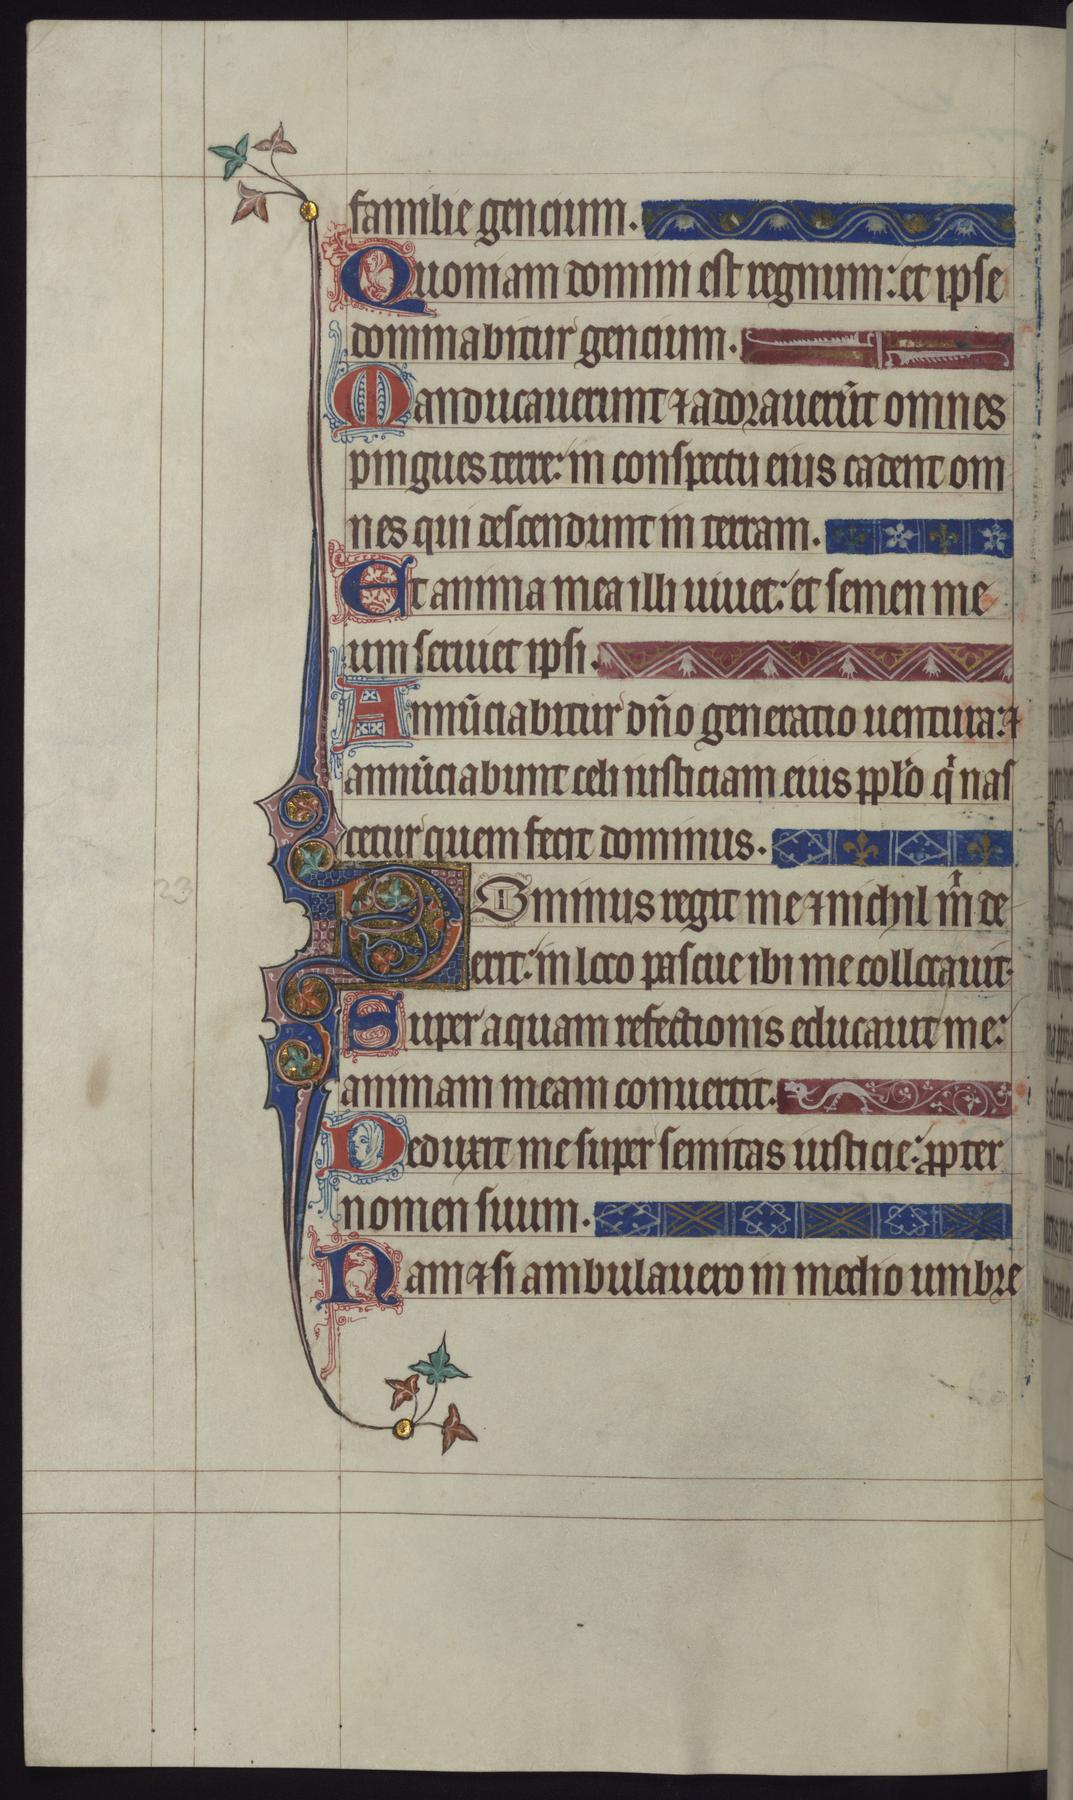 familie gencium.
Quoniam domini est regnum: et ipse
dominabitur gencium.
Manducauerunt ⁊ adorauerūt omnes
pingues terre: in conspectu eius cadent om
nes qui descendunt in terram.
Et anima mea illi uiuet: et semen me
um seruiet ipsi.
Annūciabitur dño generatio uentura: ⁊
annūciabunt celi iusticiam eius pplo q nas
cetur quem fecit dominus.
23
Dominus regit me ⁊ nichil m de
erit: in loco pascue ibi me collocauit.
Super aquam refectionis educauit me:
animam meam conuertit.
Deduxit me super semitas iusticie: ppter
nomen suum.
Nam ⁊ si ambulauero in medio umbre